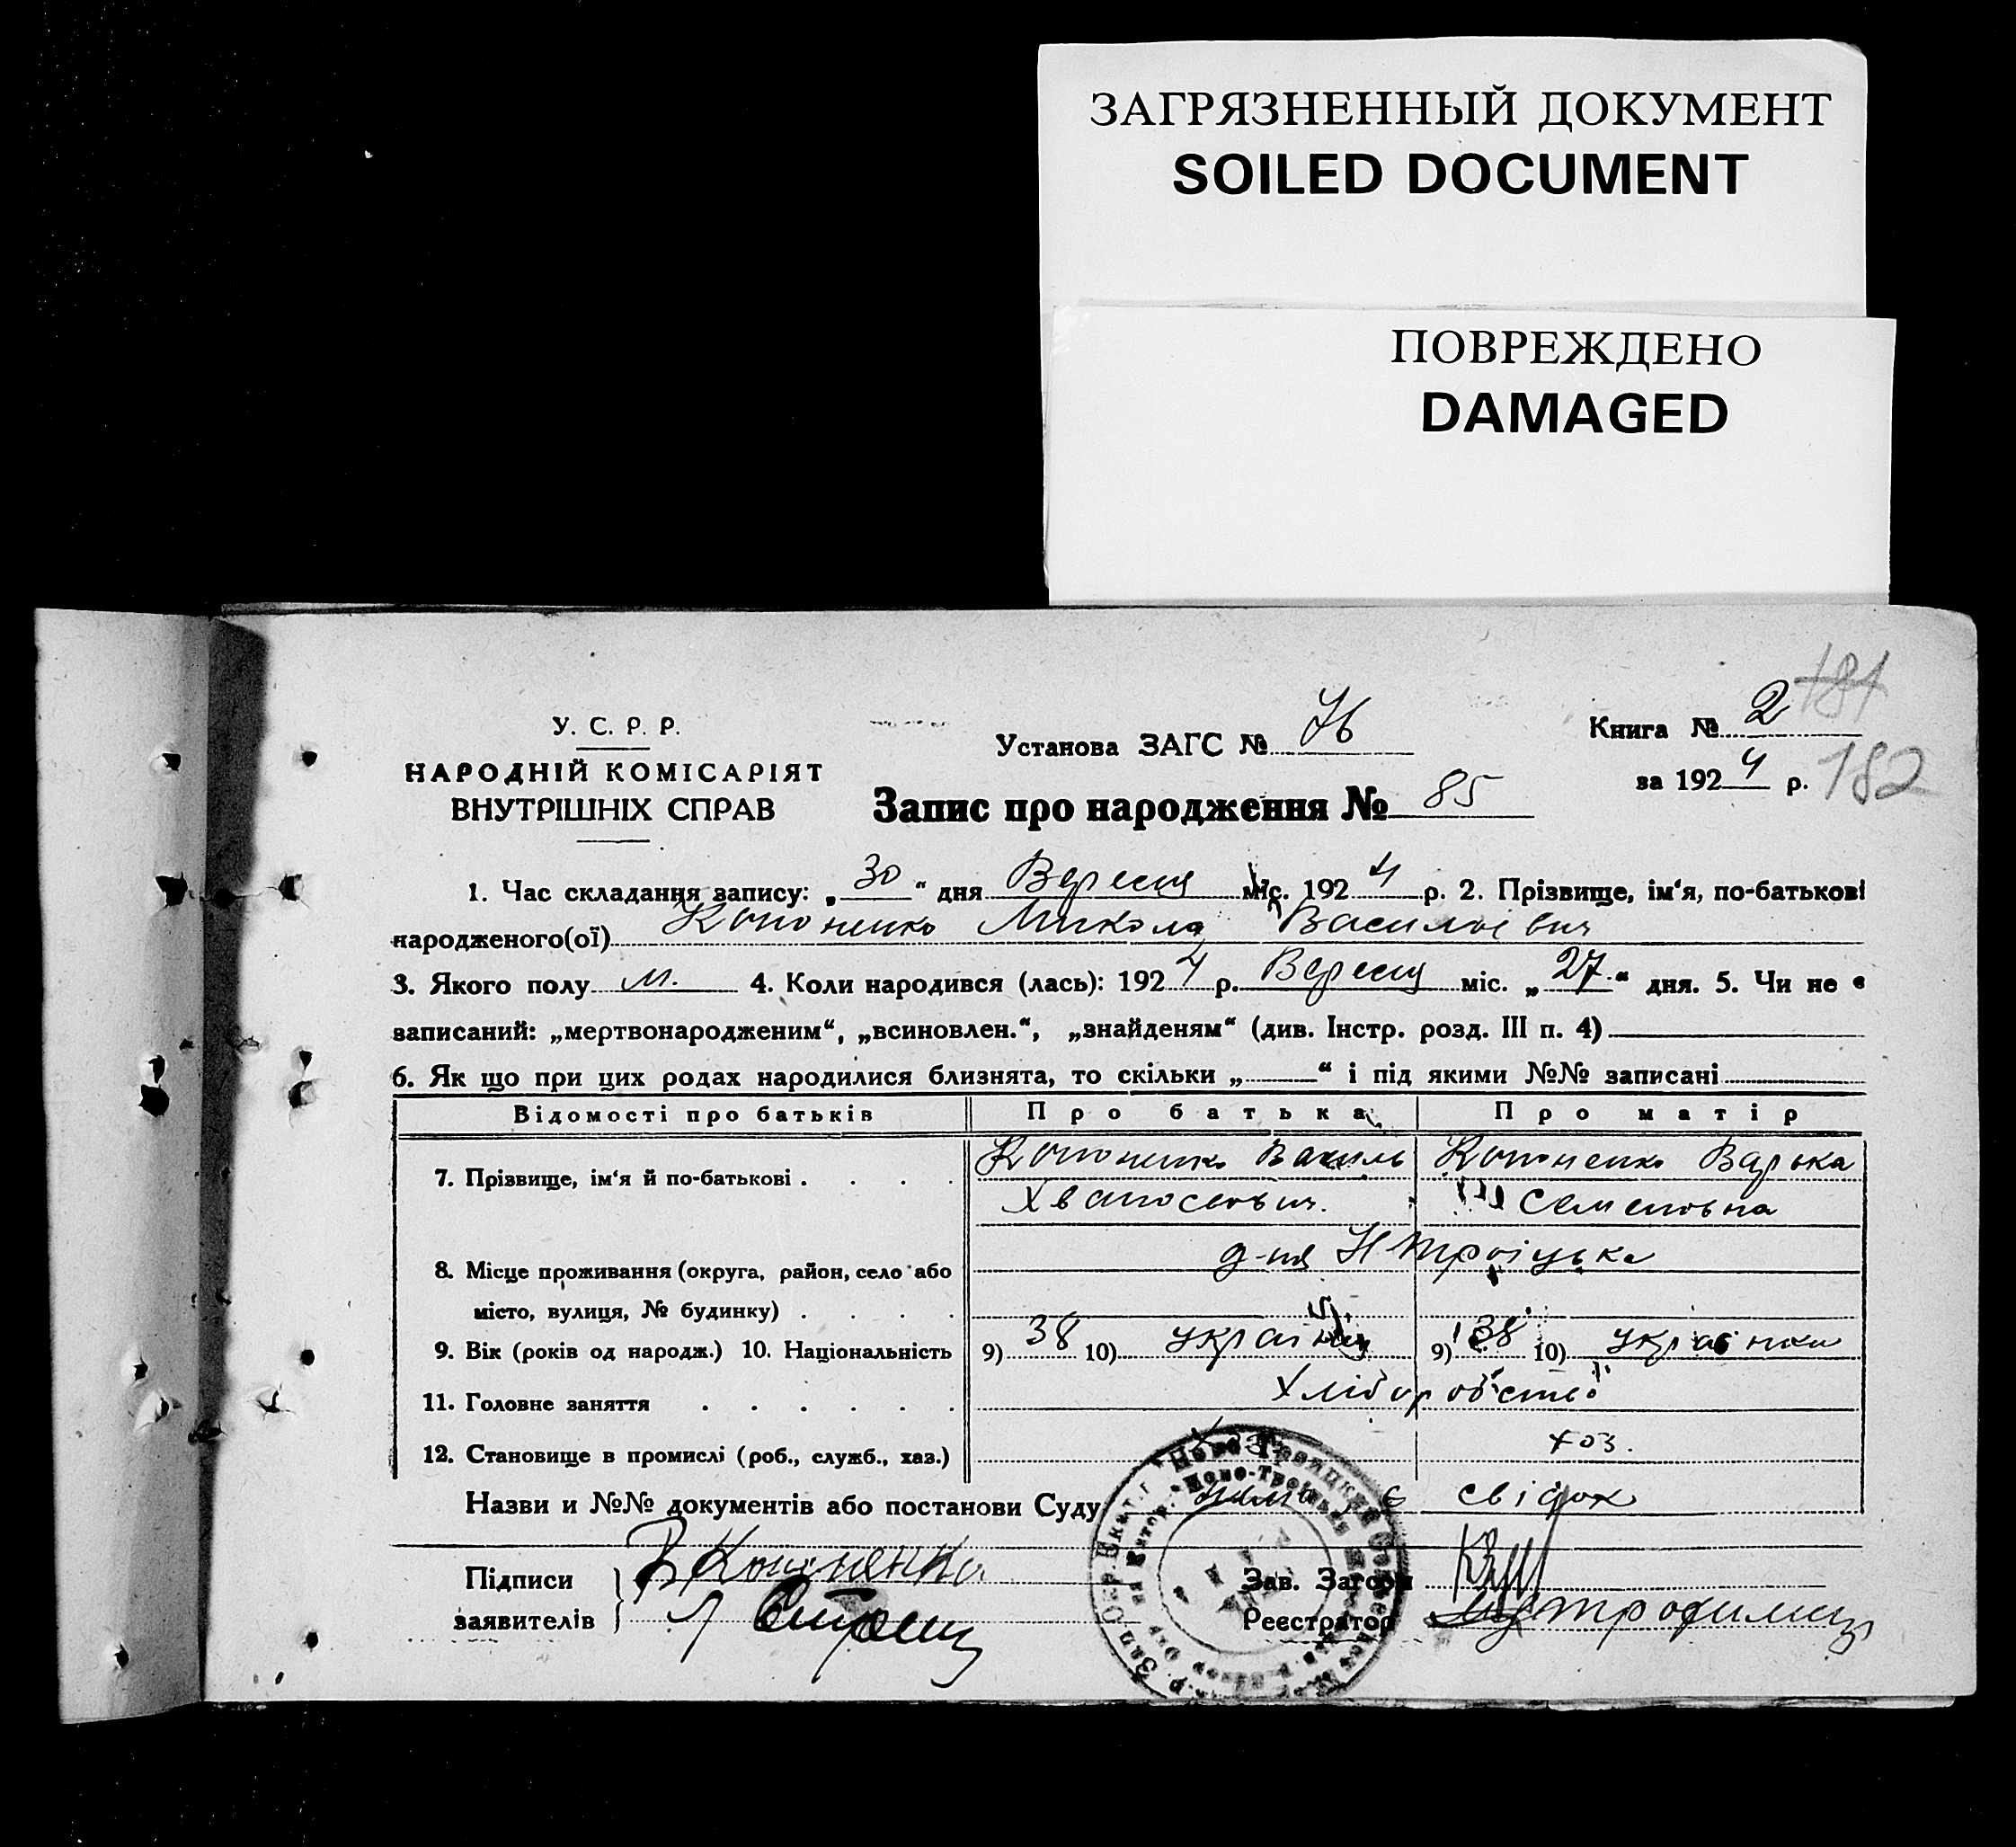 ЗАГРЯЗНЕННЫЙ ДОКУМЕНТ
SOILED DOCUMENT
ПОВРЕЖДЕНО
DAMAGED
181
У. С. Р. Р.
НАРОДНІЙ КОМІСАРІЯТ
ВНУТРІШНІХ СПРАВ
Установа ЗАГС № 76
Книга № 2
за 1924 р. 182
Запис про народження № 85
1. Час складання запису: „30“ дня Вересня міс. 1924 р. 2. Прізвище, ім‘я, по-батькові
народженого(ої) Кононенко Микола Васильєвич
3. Якого полу м. 4. Коли народився (лась): 1924 р. Вересня міс. „27.“ дня. 5. Чи не є
записаний: „мертвонародженим“, „всиновлен.“, „знайденям“ (див. Інстр. розд. III п. 4)
6. Як що при цих родах народилися близнята, то скільки „ “ і під якими №№ записані
Відомості про батьків Про батька Про матір
7. Прізвище, ім‘я й по-батькові . . . . Кононенко Василь Кононенко Варька
Семеновна
8. Місце проживання (округа, район, село або д-ня Н Троіцька
місто, вулиця, № будинку) . . . .
9. Вік (років од народж.) 10. Національність 9) 38 10) українец 9) 38 10) українка
11. Головне заняття . . . . . . Хліборобство
12. Становище в промислі (роб., служб., хаз.) хоз.
Назви и №№ документів або постанови Суду нема є свідок
Підписи В Кононенко Зав. Загсом
заявителів Реєстратор